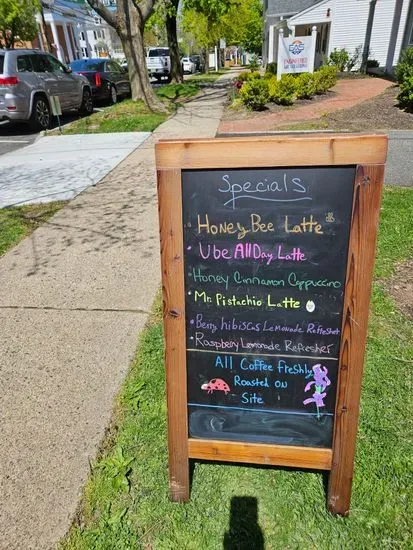 Specials
Honey Bee Latte
Ube AllDay Latte
Honey Cinnamon Cappuccino
Mr. Pistachio Latte
Berry hibiscus Lemonade Refresher
Raspberry Lemonade Refresher
All Coffee freshly
Roasted on
Site